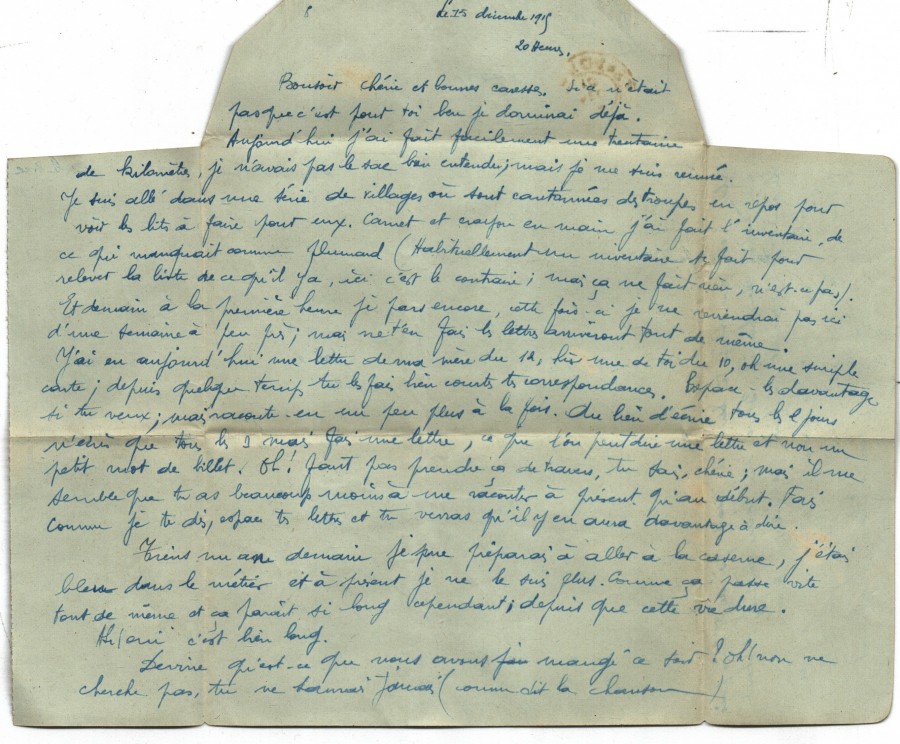 8 Le 15 décembre 1915
20 heures.
Bonsoir chérie et bonnes caresses. Si ça n'était
pas que c'est pour toi ben je dormirai déjà.
Aujourd'hui j'ai fait facilement une trentaine
de kilomètres, je n'avais pas le sac bien entendu; mais je me suis remué.
Je suis allé dans une série de villages où sont cantonnées des troupes en repos pour
voir les lits à faire pour eux. Carnet et crayon en main j'ai fait l'inventaire, de
ce qui manquait comme plumard (Habituellement un inventaire se fait pour
relever la liste de ce qu'il y a, ici c'est le contraire; mais ça ne fait rien, n'est-ce pas).
Et demain à la première heure je pars encore, cette fois-ci je ne reviendrai pas ici
d'une semaine à peu près; mais ne t'en fais les lettres arriveront tout de même.
J'ai eu aujourd'hui une lettre de ma mère du 12, hier une de toi du 10, oh une simple
carte; depuis quelque temps tu les fais bien courtes tes correspondances. Espace-les davantage
si tu veux; mais raconte-en un peu plus à la fois. Au lieu d'écrire tous les 2 jours
n'écris que tous les 3 mais fais une lettre, ce que l'on peut dire une lettre et non un
petit mot de billet. Oh! faut pas prendre ça de travers, tu sais, chérie; mais il me
semble que tu as beaucoup moins à me raconter à présent qu'au début. Fais
comme je te dis, espace tes lettres et tu verras qu'il y en aura davantage à dire.
Tiens un an demain je me préparais à aller à la caserne, j'étais
bleu dans le métier et à présent je ne le suis plus. Comme ça passe vite
tout de même et ça paraît si long cependant; depuis que cette vie dure.
Ah! oui c'est bien long.
Devine qu'est-ce que nous avons mangé ce soir? Oh! non ne
cherche pas, tu ne sauras jamais (comme dit la chanson).